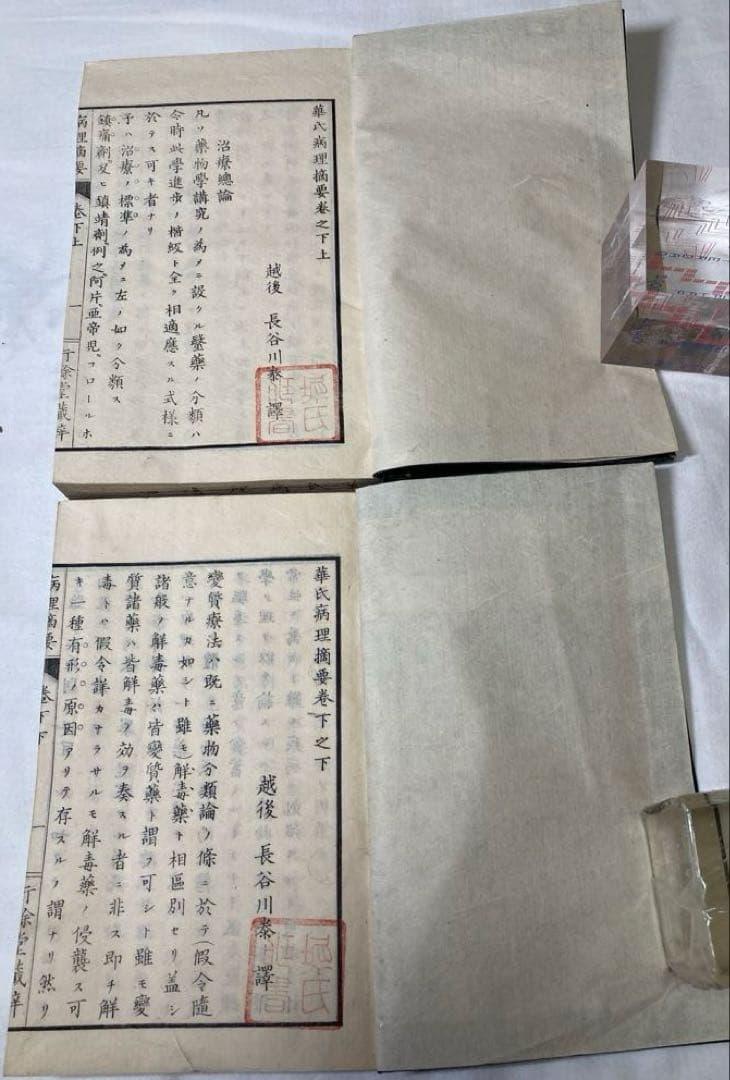 華氏病理摘要卷之下上
越後 長谷川泰 譯
治療總論
凡ソ藥物學講究ノ為メニ設クル醫藥ノ分類ハ
今時此學進歩ノ楷級ト全ク相適應スル式樣ニ
於テス可キ者ナリ
予ハ治療ノ標準ノ為メニ左ノ如ク分類ス
鎮痛劑及ヒ鎮靖劑、例之、阿片、亜帝児、コロールホ
病理摘要 卷下上 行餘堂藏梓
華氏病理摘要卷下之下
越後 長谷川泰 譯
變質療法ハ既ニ藥物分類論ノ條ニ於テ(假令隨
意ナルカ如シト雖モ)解毒藥ト相區別セリ蓋シ
諸般ノ解毒藥ハ皆變質藥ト謂フ可シト雖モ變
質諸藥ハ皆解毒ノ効ヲ奏スル者ニ非ス即チ解
毒トハ假令詳カナラサルモ解毒藥ノ侵襲ス可
キ一種有形ノ原因アリテ存スルヲ謂ナリ然リ
病理摘要 卷下下 行餘堂藏梓